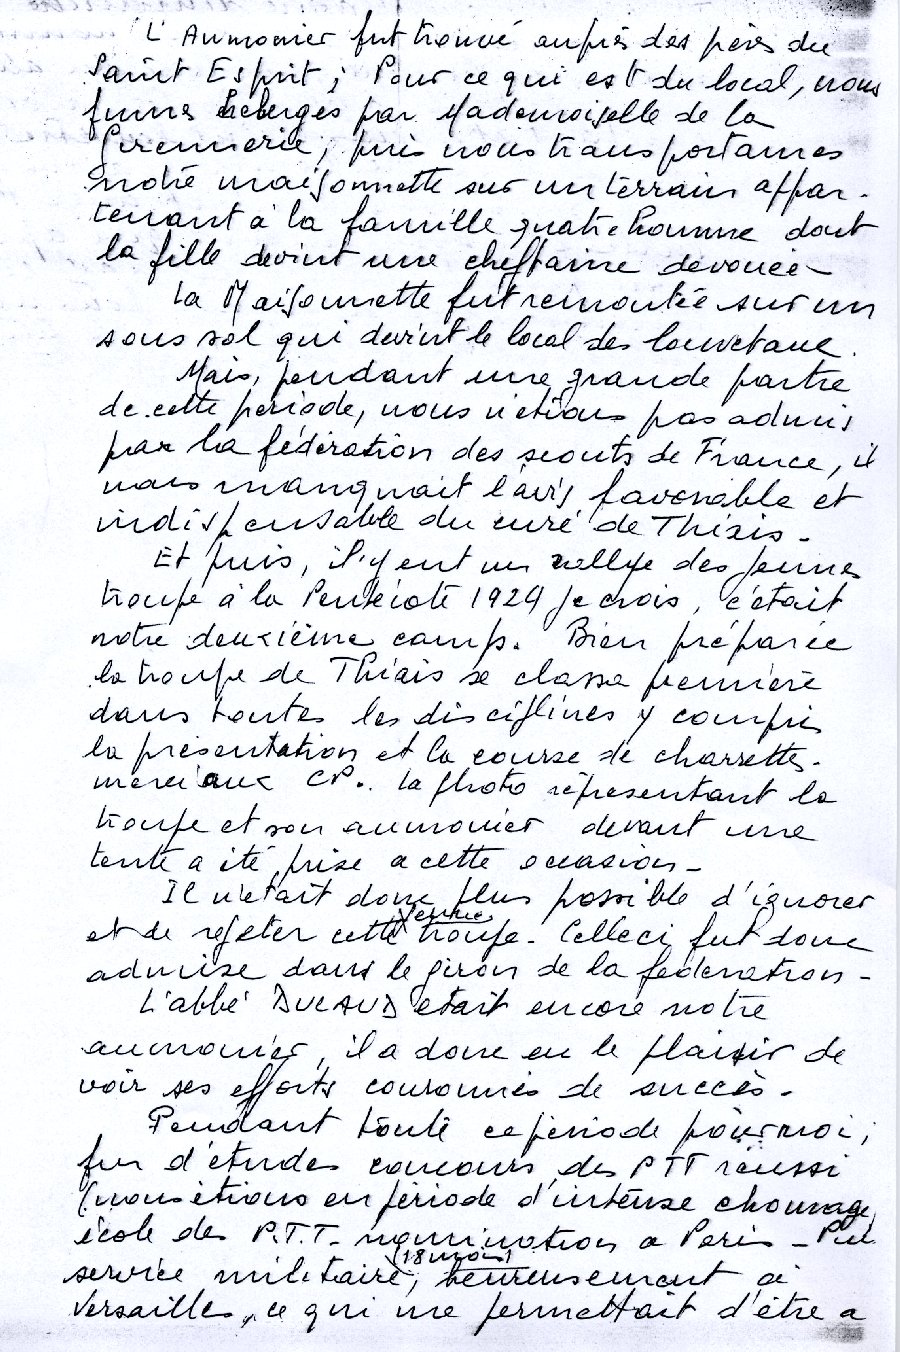 L'Aumonier fut trouvé auprès des pères du
Saint Esprit ; Pour ce qui est du local, nous
fumes hébergés par Mademoiselle de la
puis nous transportames
notre maisonnette sur un terrain appar-
tenant à la famille quatrehomme dont
la fille devint une cheftaine dévouée -
La Maisonnette fut remontée sur un
sous sol qui devint le local des louvetaux.
Mais, pendant une grande partie
de cette période, nous n'étions pas admis
par la fédération des scouts de France, il
nous manquait l'avis favorable et
indispensable du curé de Thiais -
Et puis, il y eut un rallye des jeunes
troupe à la Pentecote 1929 je crois, c'était
notre deuxième camp. Bien préparée
la troupe de Thiais se classa première
dans toutes les disciplines y compris
la présentation et la course de charrettes -
merci aux CP. La photo représentant la
troupe et son aumonier devant une
tente a été prise a cette occasion -
Il n'était donc plus possible d'ignorer
et de rejeter cette jeune troupe - Celleci fut donc
admise dans le giron de la fédération -
L'abbé DUCAUD était encore notre
aumonier, il a donc eu le plaisir de
voir ses efforts couronnés de succès -
Pendant toute ce période pour moi ;
fin d'études concours des PTT réussi
(nous étions en période d'intense chomage,
école des P.T.T. nomination a Paris - Puis
service militaire (18 mois), heureusement à
Versailles, ce qui me permettait d'être a